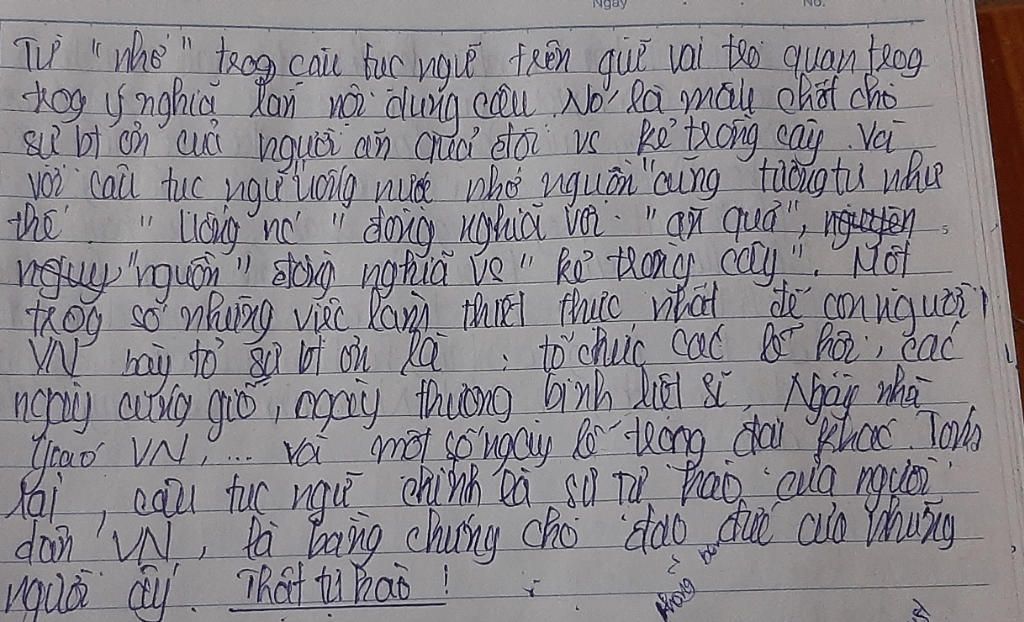 Ngày No.
Từ "nhớ" trog câu tục ngữ trên giữ vai trò quan trog
trog ý nghĩa lẫn nội dung câu. Nó là mấu chốt cho
sự bt ơn của người ăn quả đối vs kẻ trồng cây. Và
với câu tục ngữ "uống nước nhớ nguồn" cũng tương tự như
thế. "uống nc" đồng nghĩa với "ăn quả",
"nguồn" đồng nghĩa vs "kẻ trồng cây". Một
trog số những việc làm thiết thực nhất để con người
VN bày tỏ sự bt ơn là: tổ chức các lễ hội, các
ngày cúng giỗ, ngày thương binh liệt sĩ, Ngày nhà
giáo VN,... và một số ngày lễ trọng đại khác. Tóm
lại, câu tục ngữ chính là sự tự hào của người
dân VN, là bằng chứng cho đạo đức của những
người ấy. Thật tự hào!